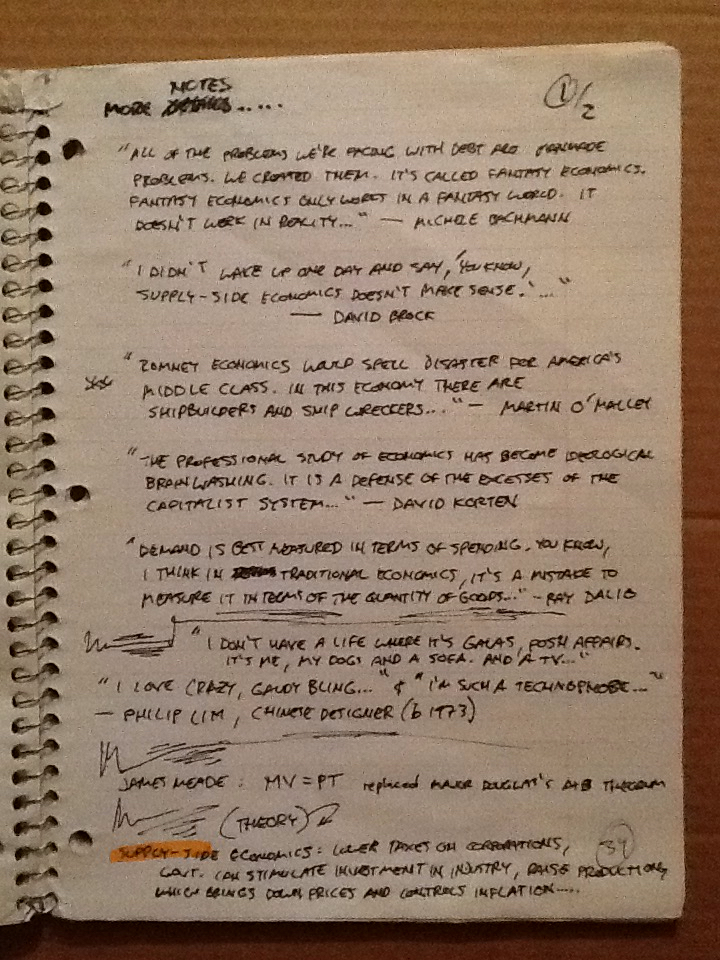 NOTES
MORE .....
1/2
"ALL OF THE PROBLEMS WE'RE FACING WITH DEBT ARE MANMADE
PROBLEMS. WE CREATED THEM. IT'S CALLED FANTASY ECONOMICS.
FANTASY ECONOMICS ONLY WORKS IN A FANTASY WORLD. IT
DOESN'T WORK IN REALITY..." — MICHELE BACHMANN
"I DIDN'T WAKE UP ONE DAY AND SAY, 'YOU KNOW,
SUPPLY-SIDE ECONOMICS DOESN'T MAKE SENSE.'..."
— DAVID BROCK
"ROMNEY ECONOMICS WOULD SPELL DISASTER FOR AMERICA'S
MIDDLE CLASS. IN THIS ECONOMY THERE ARE
SHIPBUILDERS AND SHIP WRECKERS..." — MARTIN O'MALLEY
"THE PROFESSIONAL STUDY OF ECONOMICS HAS BECOME IDEOLOGICAL
BRAINWASHING. IT IS A DEFENSE OF THE EXCESSES OF THE
CAPITALIST SYSTEM..." — DAVID KORTEN
"DEMAND IS BEST MEASURED IN TERMS OF SPENDING. YOU KNOW,
I THINK IN TRADITIONAL ECONOMICS, IT'S A MISTAKE TO
MEASURE IT IN TERMS OF THE QUANTITY OF GOODS..." — RAY DALIO
"I DON'T HAVE A LIFE WHERE IT'S GALAS, POSH AFFAIRS.
IT'S ME, MY DOGS AND A SOFA. AND A TV..."
"I LOVE CRAZY, GAUDY BLING..." & "I'M SUCH A TECHNOPHOBE..."
— PHILIP LIM, CHINESE DETIGNER (b 1973)
JAMES MEADE: MV = PT replaced MAJOR DOUGLAS'S A+B THEOREM
(THEORY)
SUPPLY-SIDE ECONOMICS: LOWER TAXES ON CORPORATIONS,
GOVT. CAN STIMULATE INVESTMENT IN INDUSTRY, RAISE PRODUCTION,
WHICH BRINGS DOWN PRICES AND CONTROLS INFLATION....